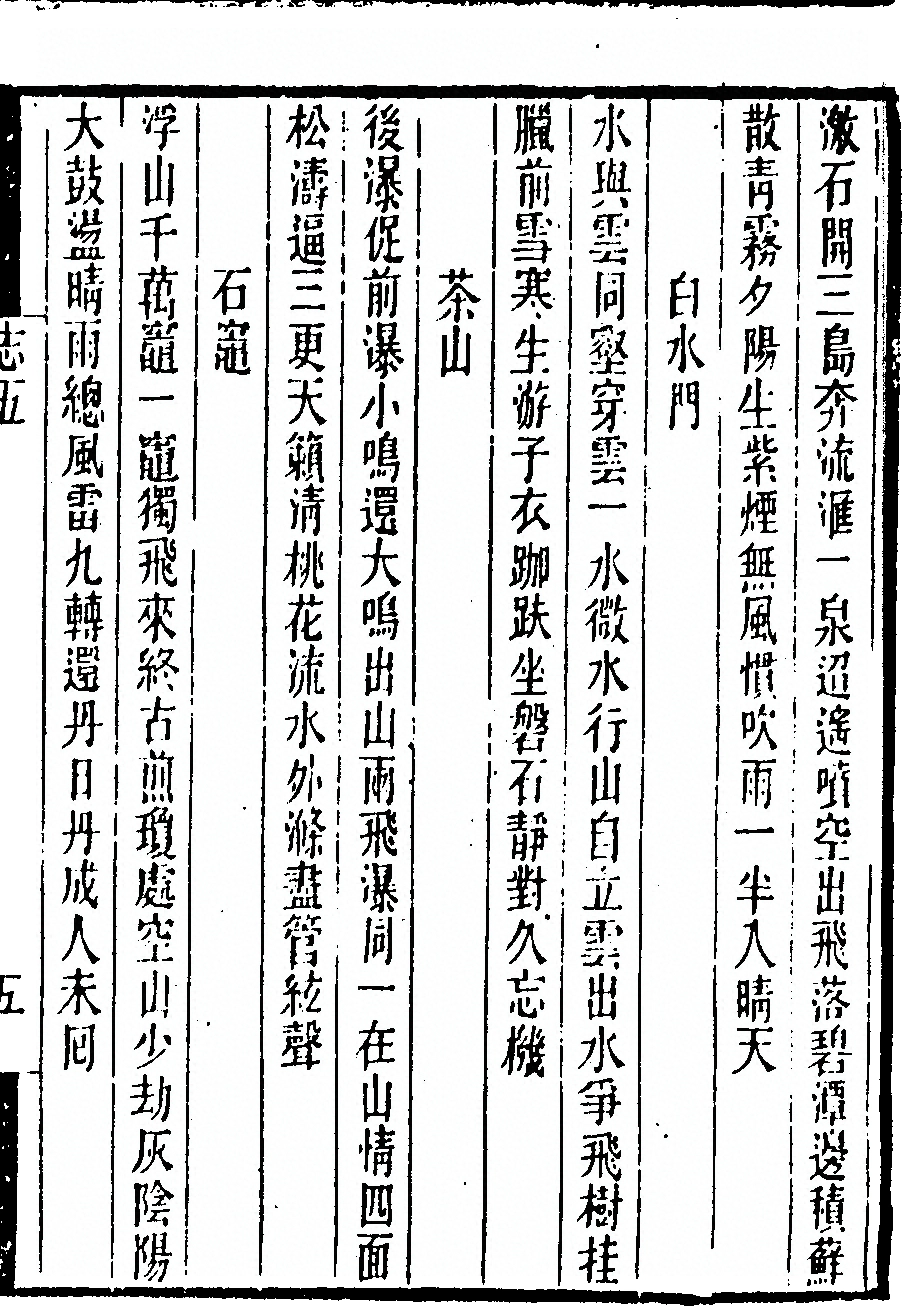 激石開三島奔流滙一泉迢遙噴空出飛落碧潭邊積蘚
散青霧夕陽生紫煙無風慣吹雨一半入晴天
白水門
水與雲同壑穿雲一水微水行山自立雲出水爭飛樹挂
臘前雪寒生游子衣跏趺坐磐石靜對久忘機
茶山
後瀑促前瀑小鳴還大鳴出山兩飛瀑同一在山情四面
松濤逼三更天籟淸桃花流水外滌盡管絃聲
石竈
浮山千萬竈一竈獨飛來終古煎瓊處空山少劫灰陰陽
大鼓盪晴雨總風雷九轉還丹日丹成人未囘
志五
五